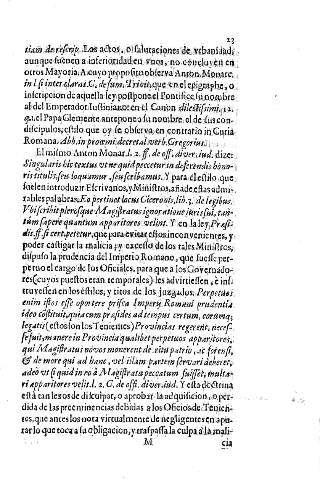 23
tiam de rescrip. Los actos, o salutaciones de vrbanidad,
aunque suenen a inferioridad en vnos, no concluyen en
otros Mayoria. A cuyo proposito observa Anton. Monarc.
in l. si inter claras C. de sum. Trivit, que en el epigraphe, o
inscripcion de aquella ley pospone el Pontifice su nombre
al del Emperador Iustiniano: en el Canon dilectissimi, 12.
q. el Papa Clemente antepone su nombre al de sus con-
discipulos, estilo que oy se observa en contrario in Curia
Romana. Abb. in proœmi. decretal. verb. Gregorius.
El mismo Anton Monar. l. 2. ff. de off. diver. iud. dize:
Singularis hic textus ut ne quid peccetur in deferendis hono-
ris titulis, ses loquamur, seu scribamus. Y para el estilo que
suelen introduzir Escrivanos, y Ministros, añade estas admi-
rables palabras. Eo pertinet locus Ciceronis, lib. 3. de legibus.
Vbi scribit plerosque Magistratus ignoratione iuris sui, tan-
tum sapere quantum apparitores velint. Y en la ley, Præsi-
dis. ff. si cert. petetur, que para evitar estos inconvenientes, y
poder castigar la malicia, y excesso de los tales Ministros,
dispuso la prudencia del Imperio Romano, que fuesse per-
petuo el cargo de los Oficiales, para que a los Governado-
res (cuyos puestos eran temporales) les advirtiessen, è ins-
truyessen en los estilos, y ritos de los juzgados. Perpetuos
enim istos esse oportere prisca Impery Romani prudentia
ideo constituit, quia cum præsides ad tempus certum, eorumq;
legati (estos son los Tenientes) Provincias regerent, neces-
se fuit, manere in Provincia qualibet perpetuos apparitores,
qui Magistratus novos monerent de ritu patrio, ac forensi,
& de more qui ad hanc, vel illam partem servari deberet,
adeo vt si quid in ro à Magistratu peccatum fuisset, multa-
ri apparitores velit. l. 2. C. de off. diver. iud. Y esta doctrina
està tan lexos de disculpar, o aprobar la adquisicion, o per-
dida de las preeminencias debidas a los Oficios de Tenien-
tes, que antes los nota virtualmente de negligentes en apu-
rar lo que toca a su obligacion, y traspassa la culpa a la mali-
M cia